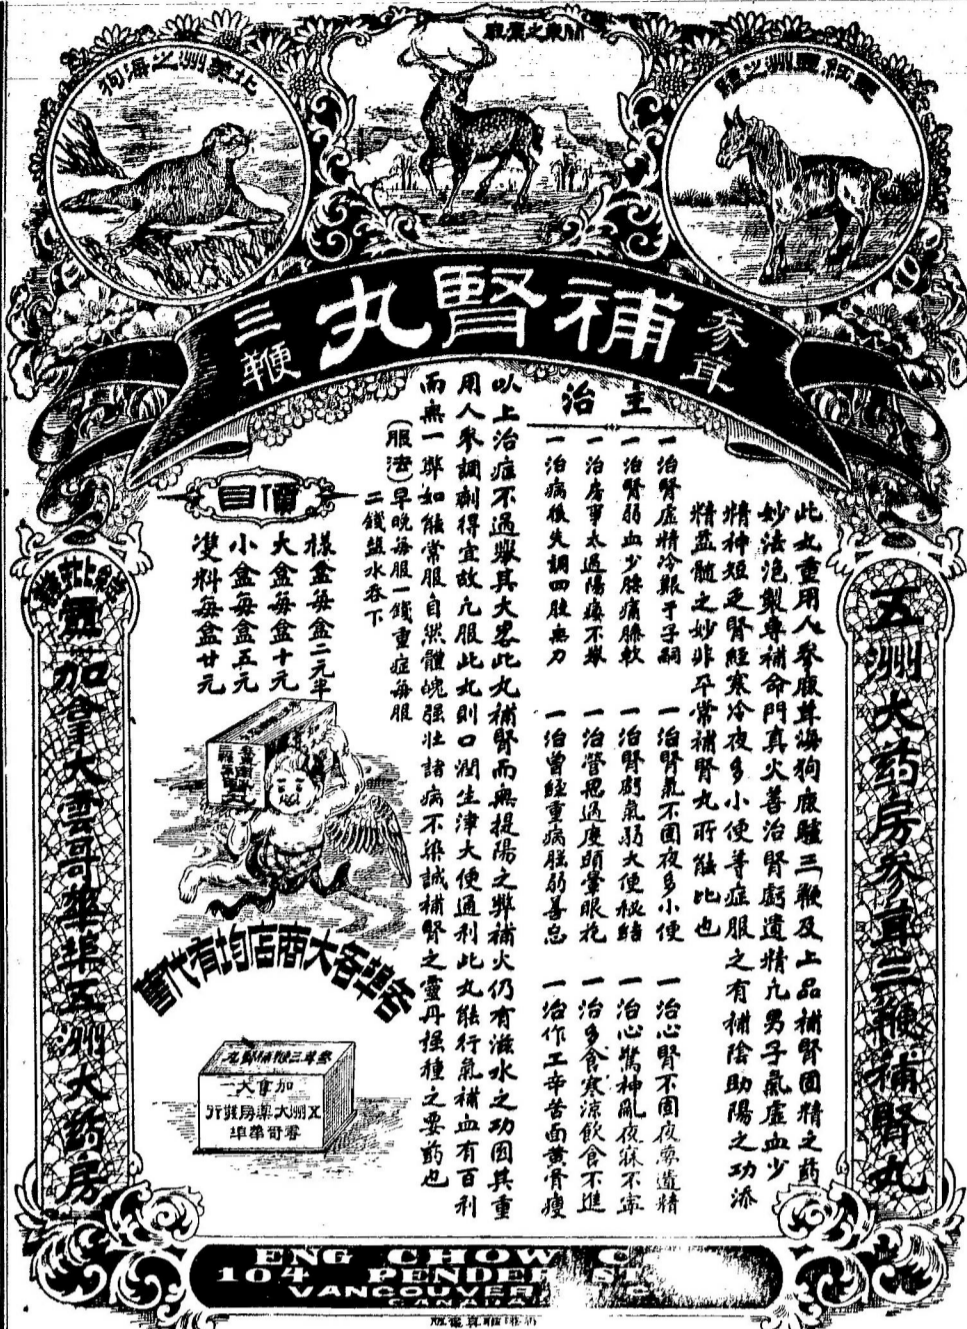 北美洲之海狗
關東之鹿
參茸
補腎丸
三鞭
五洲大药房參茸三鞭補腎丸
此丸重用人參鹿茸海狗鹿驢三鞭及上品補腎固精之药
妙法泡製專補命門真火善治腎虧遺精凡男子氣虛血少
精神短乏腎經寒冷夜多小便等症服之有補陰助陽之功添
精益髓之妙非平常補腎丸所能比也
主治
一治腎虛精冷艱于子嗣
一治腎氣不固夜多小便
一治心腎不固夜夢遺精
一治腎弱血少腰痛膝軟
一治腎虧氣弱大便秘結
一治心驚神亂夜寐不寧
一治房事太過陽痿不舉
一治營思過度頭暈眼花
一治多食寒涼飲食不進
一治病後失調四肢無力
一治曾經重病腦弱善忘
一治作工辛苦面黃骨瘦
以上治症不過舉其大畧此丸補腎而無提陽之弊補火仍有滋水之功因其重
用人參調劑得宜故凡服此丸則口潤生津大便通利此丸能行氣補血有百利
而無一弊如能常服自然體魄强壮諸病不染誠補腎之靈丹種種之要药也
(服法)早晚每服一錢重症每服
二錢鹽水吞下
價目
樣盒每盒二元半
大盒每盒十元
小盒每盒五元
雙料每盒廿元
各埠各大商店均有代售
參茸三鞭補腎丸
加拿大
五洲大藥房發行
雲哥華埠
加拿大雲哥華埠五洲大药房
ENG CHOW
104 PENDER ST
VANCOUVER
CANADA